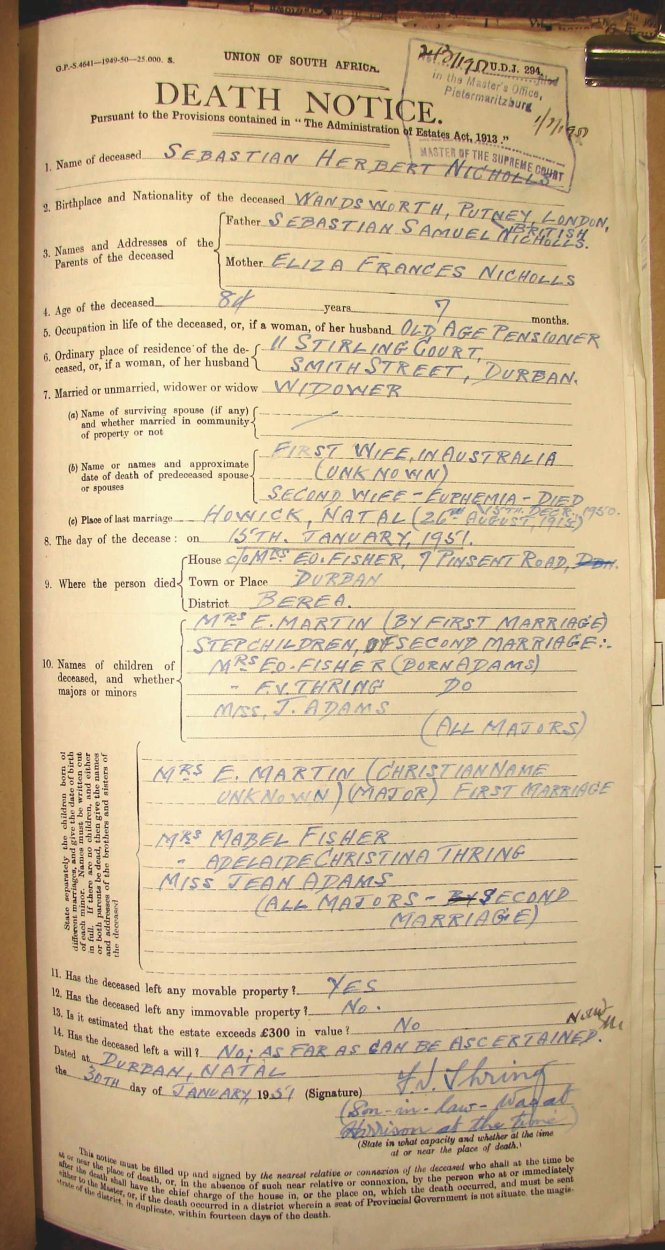 G.P.-S.4641—1949-50—25,000. S.
UNION OF SOUTH AFRICA.
U.D.J. 294.
in the Master's Office,
Pietermaritzburg
MASTER OF THE SUPREME COURT
DEATH NOTICE.
Pursuant to the Provisions contained in "The Administration of Estates Act, 1913."
1. Name of deceased SEBASTIAN HERBERT NICHOLLS
2. Birthplace and Nationality of the deceased WANDSWORTH, PUTNEY, LONDON,
BRITISH
3. Names and Addresses of the Parents of the deceased
Father SEBASTIAN SAMUEL NICHOLLS.
Mother ELIZA FRANCES NICHOLLS
4. Age of the deceased years 7 months.
5. Occupation in life of the deceased, or, if a woman, of her husband OLD AGE PENSIONER
6. Ordinary place of residence of the de- 11 STIRLING COURT,
ceased, or, if a woman, of her husband SMITH STREET, DURBAN.
7. Married or unmarried, widower or widow WIDOWER
(a) Name of surviving spouse (if any)
and whether married in community
of property or not
(b) Name or names and approximate
date of death of predeceased spouse
or spouses
FIRST WIFE, IN AUSTRALIA
(UNKNOWN)
SECOND WIFE - EUPHEMIA - DIED
15TH. DECR. 1950.
(c) Place of last marriage HOWICK, NATAL (26TH AUGUST, 1918)
8. The day of the decease: on 15TH. JANUARY, 1951.
9. Where the person died
House c/o MRS E.O. FISHER, 7 PINSENT ROAD, DBN.
Town or Place DURBAN
District BEREA.
10. Names of children of
deceased, and whether
majors or minors
MRS E. MARTIN (BY FIRST MARRIAGE)
STEPCHILDREN, OF SECOND MARRIAGE:-
MRS E.O. FISHER (BORN ADAMS)
" F.V. THRING DO
MISS, J. ADAMS
(ALL MAJORS)
State separately the children born of
different marriages, and give the date of birth
of each minor. Names must be written out
in full. If there are no children, and either
or both parents be dead, then give the names
and addresses of the brothers and sisters of
the deceased
MRS E. MARTIN (CHRISTIAN NAME
UNKNOWN) (MAJOR) FIRST MARRIAGE
MRS MABEL FISHER
" ADELAIDE CHRISTINA THRING
MISS JEAN ADAMS
(ALL MAJORS - BY SECOND
MARRIAGE)
11. Has the deceased left any movable property? YES
12. Has the deceased left any immovable property? NO.
13. Is it estimated that the estate exceeds £300 in value? NO
14. Has the deceased left a will? NO; AS FAR AS CAN BE ASCERTAINED.
Dated at DURBAN, NATAL
the 30TH day of JANUARY, 1951 (Signature) Thring
(Son-in-law - Was at
Harrison at the time)
(State in what capacity and whether at the time
at or near the place of death.)
This notice must be filled up and signed by the nearest relative or connexion of the deceased who shall at the time be
at or near the place of death, or, in the absence of such near relative or connexion, by the person who at or immediately
after the death shall have the chief charge of the house in, or the place on, which the death occurred, and must be sent
either to the Master, or, if the death occurred in a district wherein a seat of Provincial Government is not situate, the magis-
trate of the district, in duplicate, within fourteen days of the death.